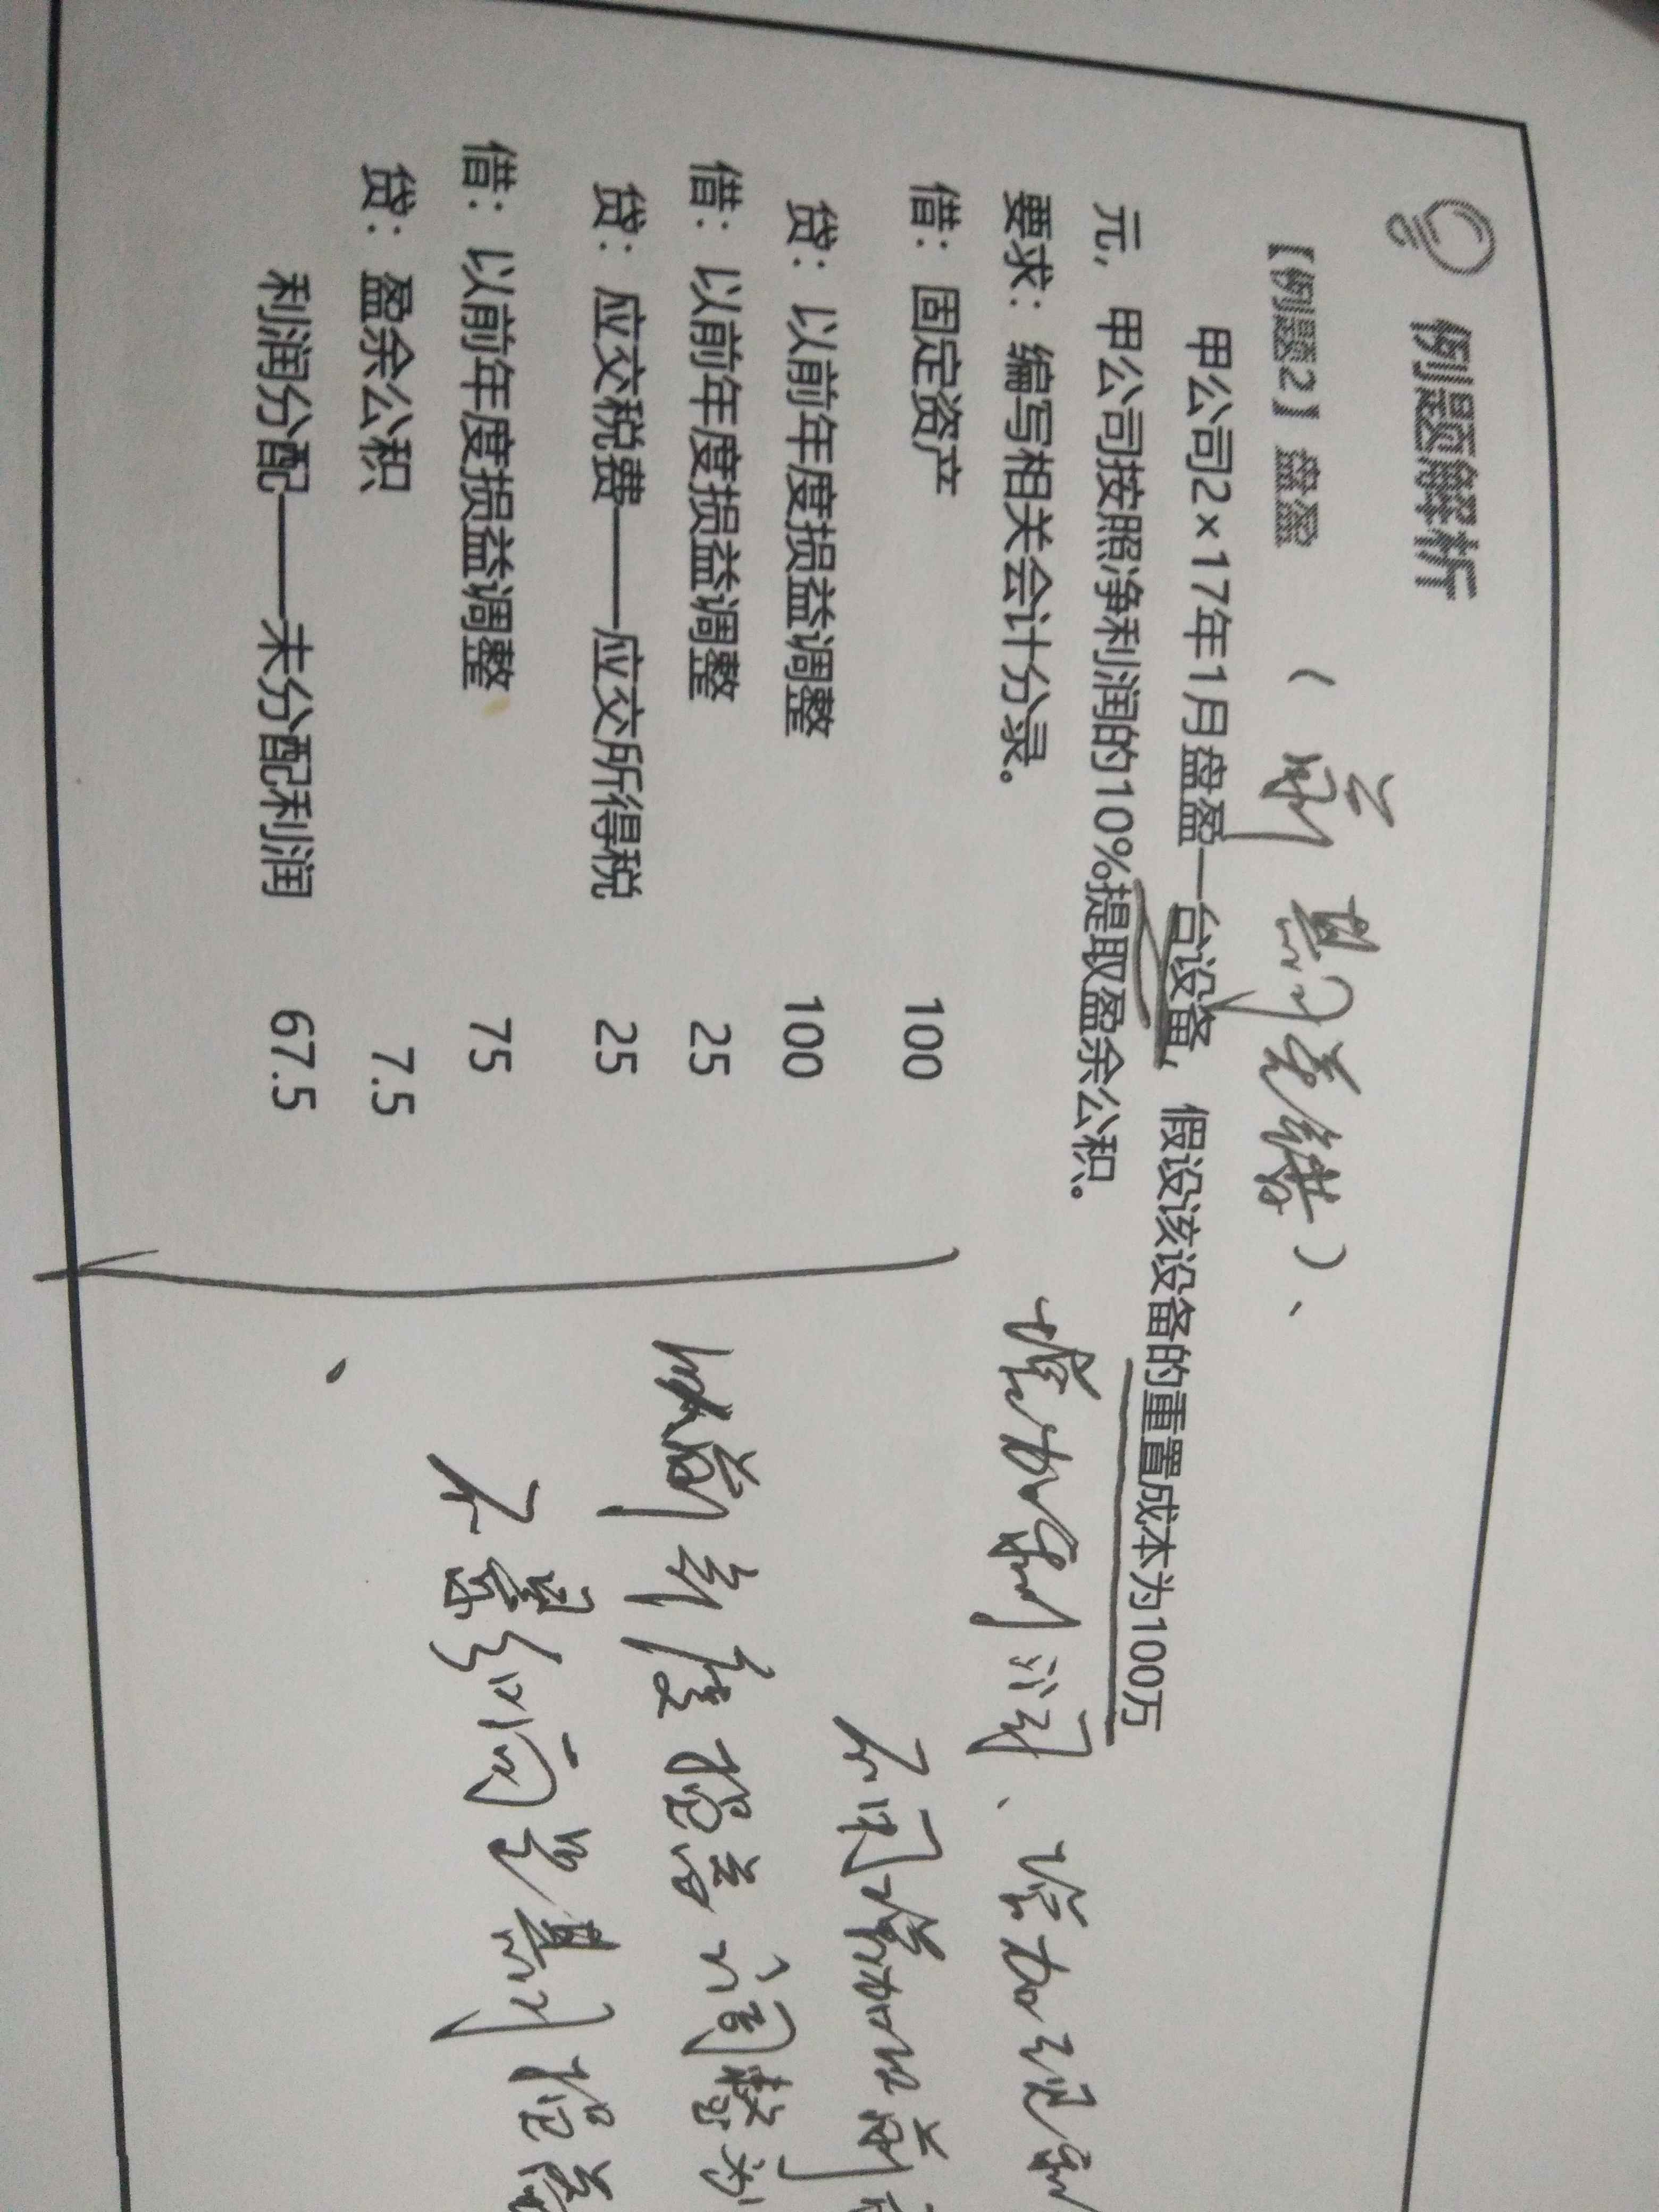 例题解析
【例题2】盘盈 (前期差错)、
甲公司2×17年1月盘盈一台设备，假设该设备的重置成本为100万
元，甲公司按照净利润的10%提取盈余公积。
要求：编写相关会计分录。
增加利润、
借：固定资产 100
贷：以前年度损益调整 100
借：以前年度损益调整 25
以前年度损益调整
贷：应交税费——应交所得税 25
借：以前年度损益调整 75
不影响
贷：盈余公积 7.5
利润分配——未分配利润 67.5